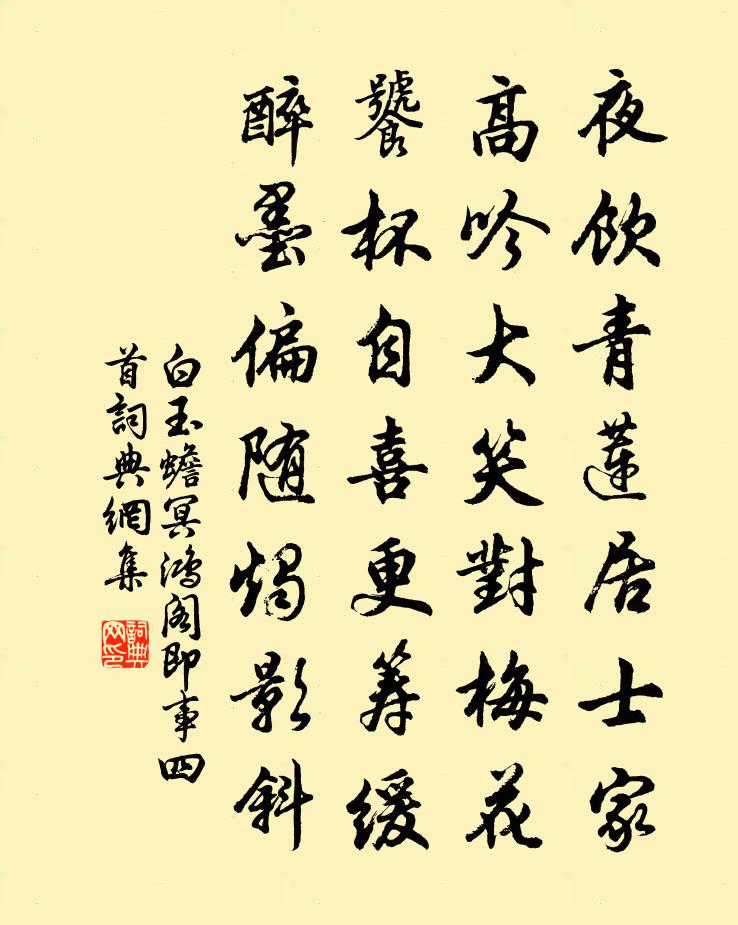 夜飲青蓮居士家
高吟大笑對梅花
饕杯自喜更籌緩
醉墨偏随燭影斜
白玉蟾冥鴻閣即事四
首詞典網集
詞典
网印